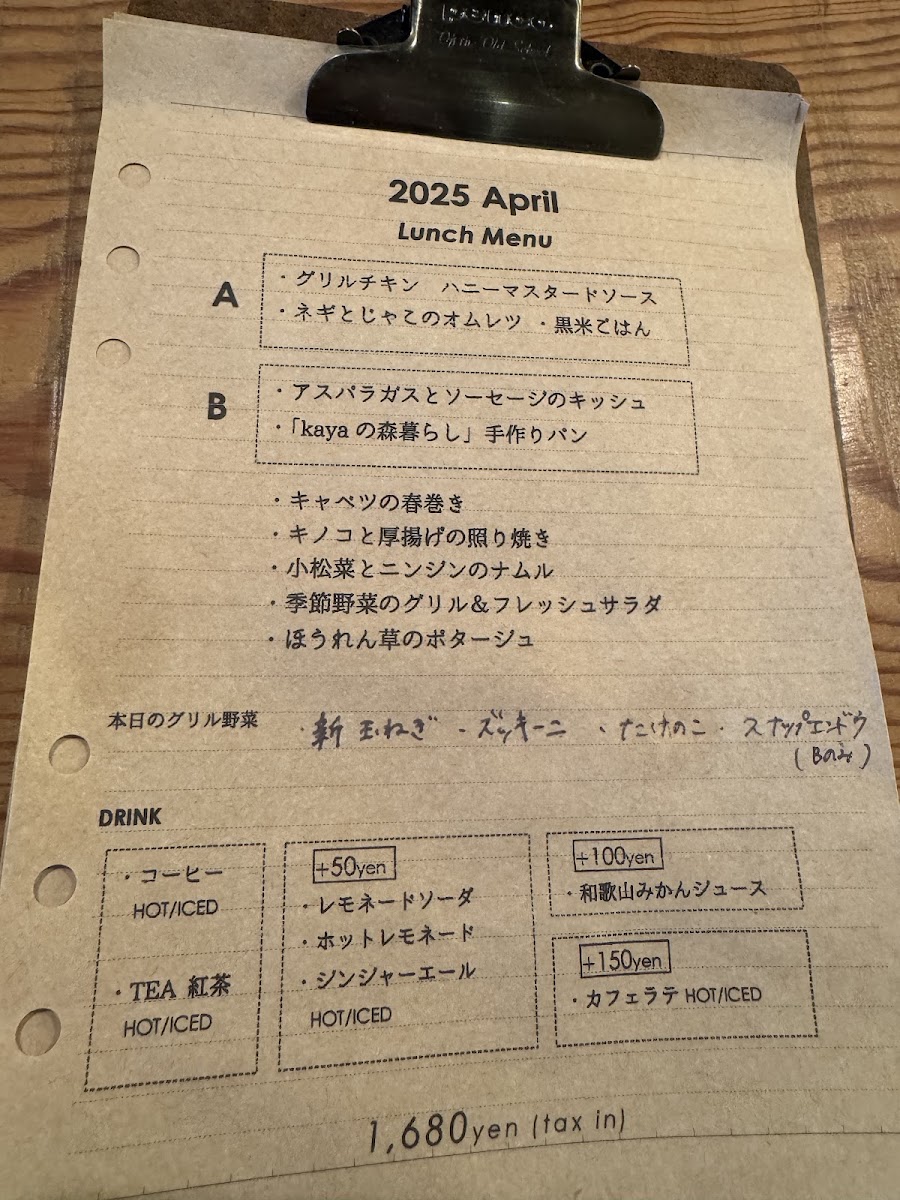 Of the Old School
2025 April
Lunch Menu
A
・グリルチキン　ハニーマスタードソース
・ネギとじゃこのオムレツ ・黒米ごはん
B
・アスパラガスとソーセージのキッシュ
・「kaya の森暮らし」手作りパン
・キャベツの春巻き
・キノコと厚揚げの照り焼き
・小松菜とニンジンのナムル
・季節野菜のグリル＆フレッシュサラダ
・ほうれん草のポタージュ
本日のグリル野菜 ・新玉ねぎ ・ズッキーニ ・たけのこ ・スナップエンドウ
(Bのみ)
DRINK
・コーヒー
HOT/ICED
・TEA 紅茶
HOT/ICED
+50yen
・レモネードソーダ
・ホットレモネード
・ジンジャーエール
HOT/ICED
+100yen
・和歌山みかんジュース
+150yen
・カフェラテ HOT/ICED
1,680yen (tax in)